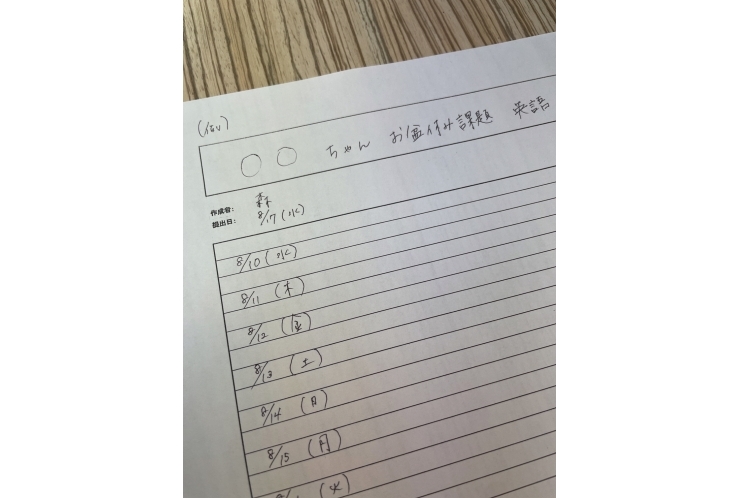 (例)
○○ ちゃん お盆休み課題 英語
作成者: 森
提出日: 8/17(水)
8/10(水)
8/11(木)
8/12(金)
8/13(土)
8/14(日)
8/15(月)
(火)